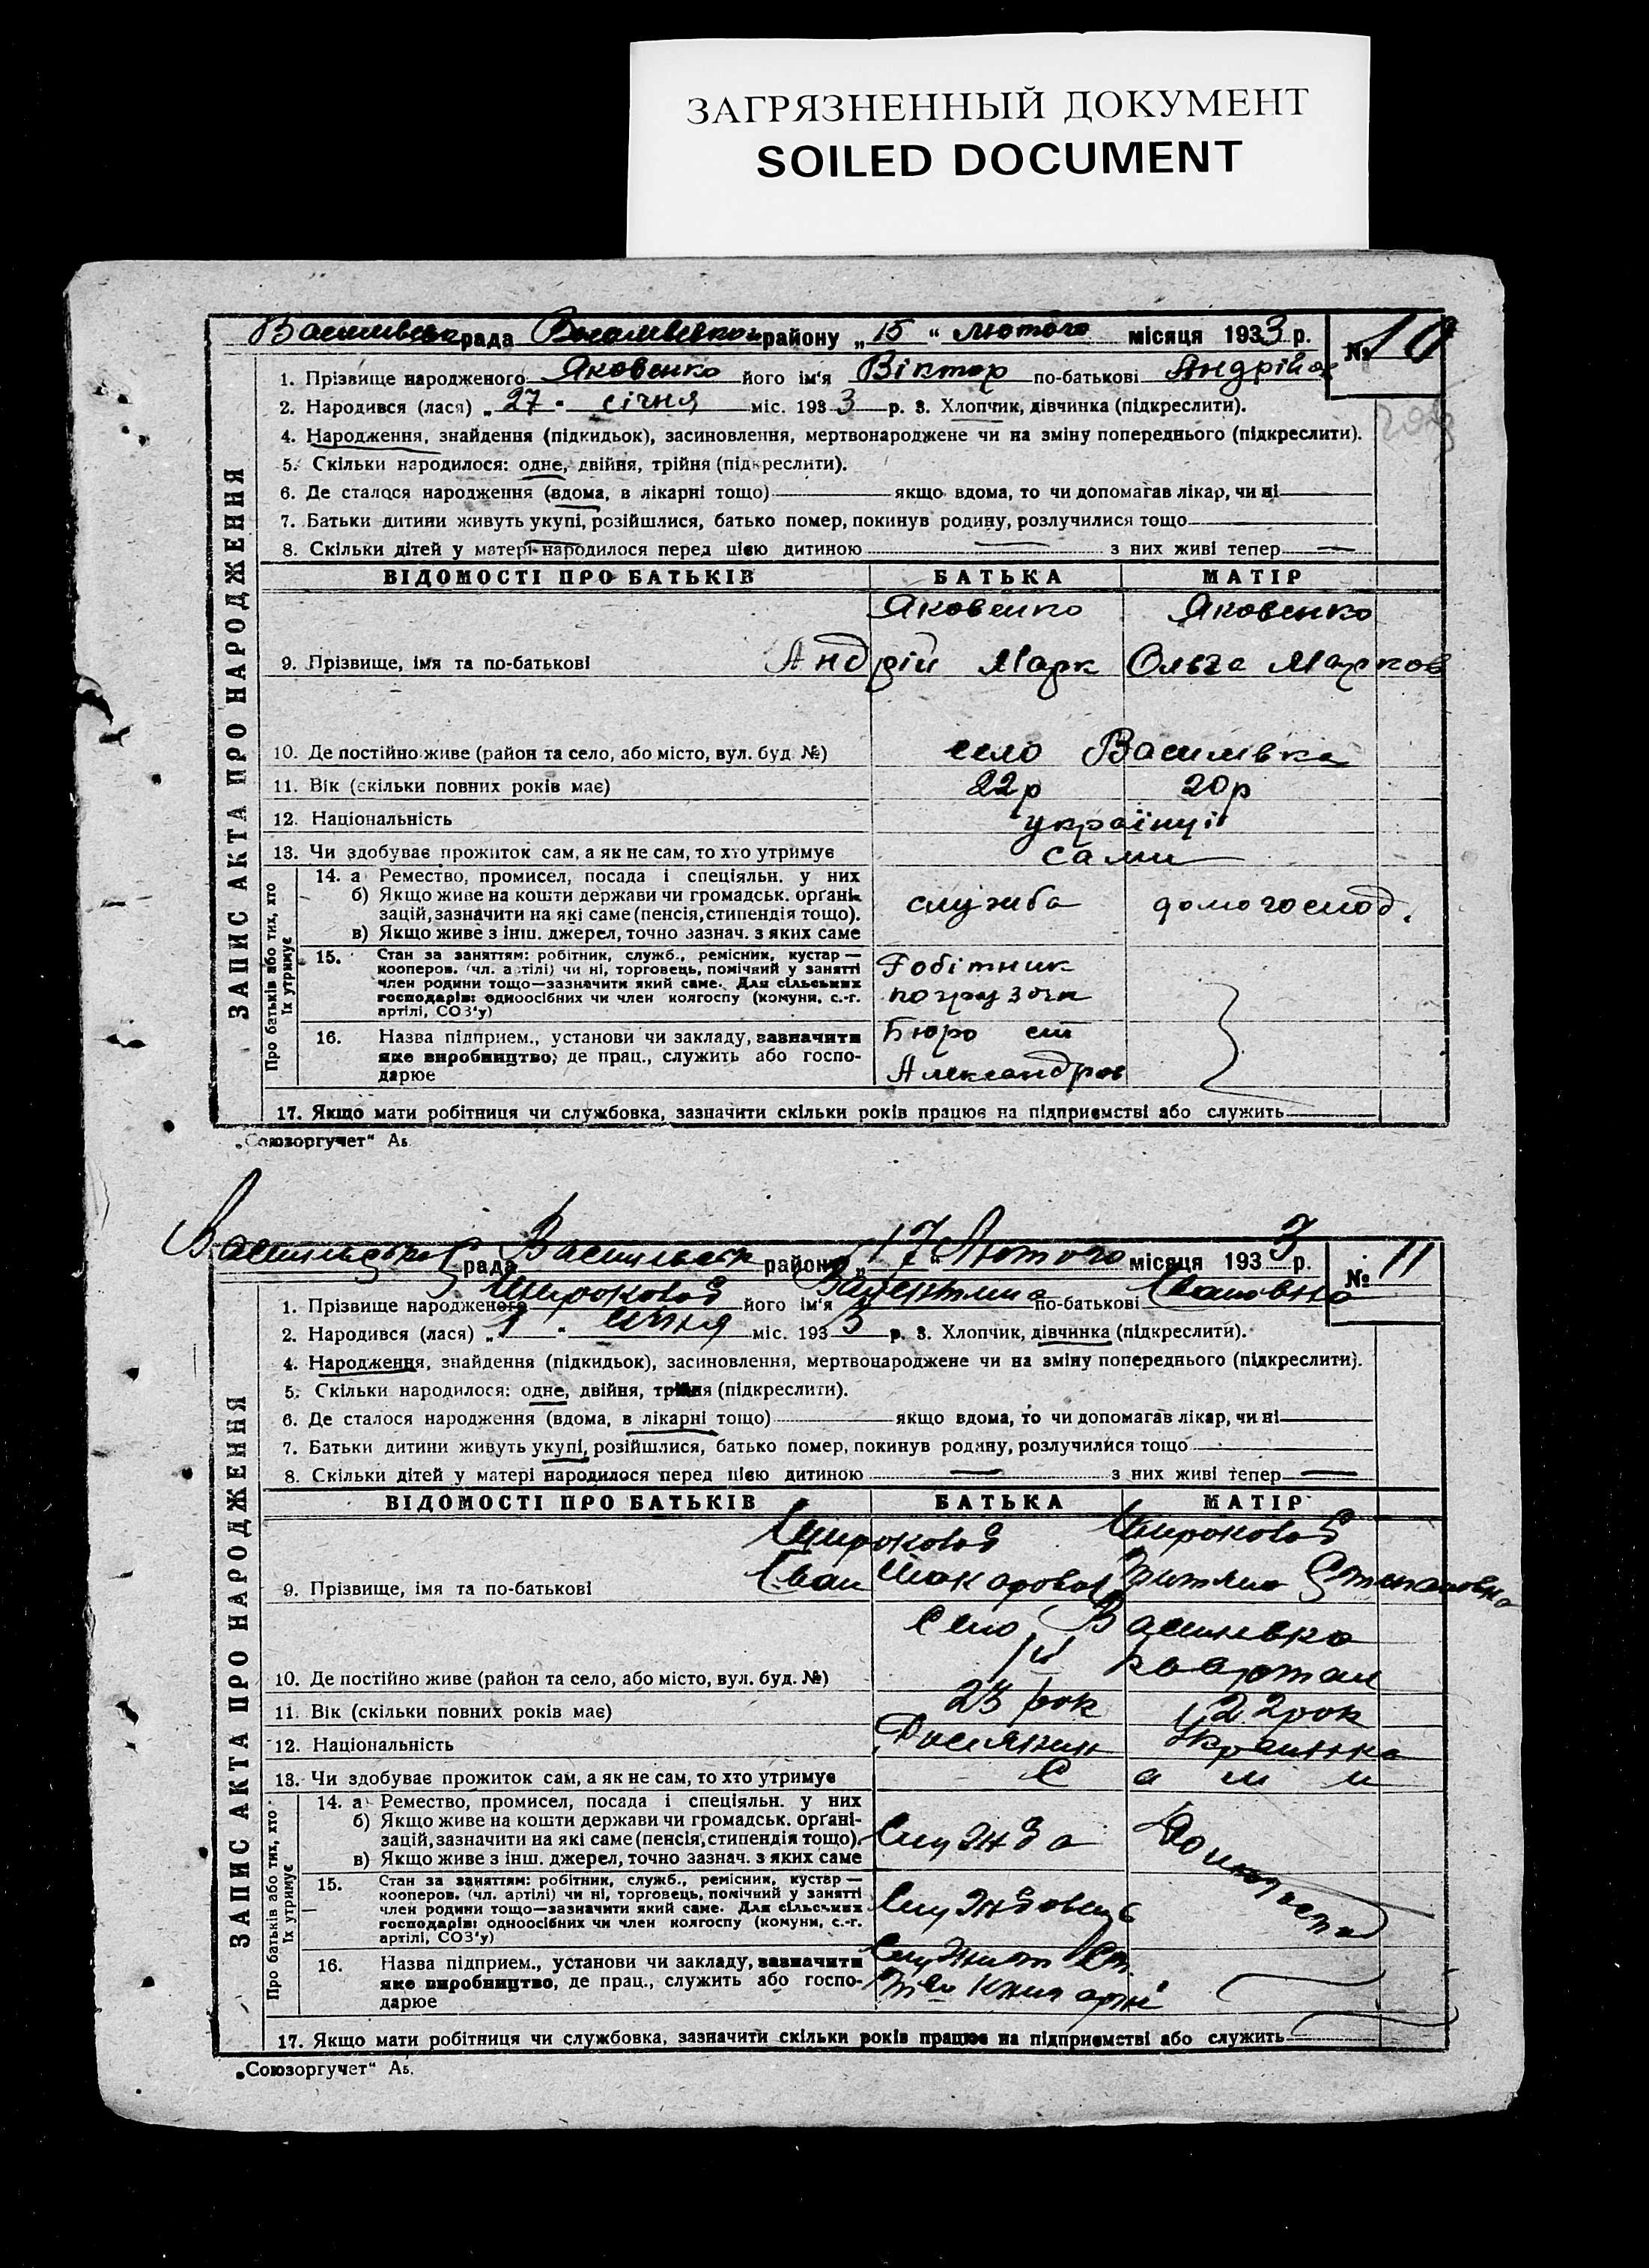 ЗАГРЯЗНЕННЫЙ ДОКУМЕНТ
SOILED DOCUMENT
рада району „15“ лютого місяця 1933 р. № 10
1. Прізвище народженого Яковенко його ім'я Віктор по-батькові Андрійов
2. Народився (лася) „27“ січня міс. 1933 р. 3. Хлопчик, дівчинка (підкреслити).
4. Народження, знайдення (підкидьок), засиновлення, мертвонароджене чи на зміну попереднього (підкреслити).
5. Скільки народилося: одне, двійня, трійня (підкреслити).
6. Де сталося народження (вдома, в лікарні тощо) якщо вдома, то чи допомагав лікар, чи ні
7. Батьки дитини живуть укупі, розійшлися, батько помер, покинув родину, розлучилися тощо
8. Скільки дітей у матері народилося перед цією дитиною — з них живі тепер —
ЗАПИС АКТА ПРО НАРОДЖЕННЯ
ВІДОМОСТІ ПРО БАТЬКІВ БАТЬКА МАТІР
Яковенко Яковенко
9. Прізвище, імя та по-батькові Андрій Марк Ольга Марков
10. Де постійно живе (район та село, або місто, вул. буд. №) село Василівка
11. Вік (скільки повних років має) 22р 20р
12. Національність українці
13. Чи здобуває прожиток сам, а як не сам, то хто утримує сами
Про батьків або тих, хто їх утримує
14. а Ремество, промисел, посада і спеціяльн. у них
б) Якщо живе на кошти держави чи громадськ. органі-
зацій, зазначити на які саме (пенсія, стипендія тощо). служба домогоспод.
в) Якщо живе з інш. джерел, точно зазнач. з яких саме
15. Стан за заняттям: робітник, служб., ремісник, кустар —
кооперов. (чл. артілі) чи ні, торговець, помічний у занятті Робітник
член родини тощо—зазначити який саме. Для сільських
господарів: одноосібних чи член колгоспу (комуни, с.-г. погрузочн
артілі, СОЗ'у)
16. Назва підприєм., установи чи закладу, зазначити Бюро ст
яке виробництво; де прац., служить або госпо-
дарює Александров
17. Якщо мати робітниця чи службовка, зазначити скільки років працює на підприємстві або служить
„Союзоргучет“ А5.
рада району „17“ Лютого місяця 1933 р. № 11
1. Прізвище народженого його ім'я Валентина по-батькові Івановна
2. Народився (лася) „1“ січня міс. 1933 р. 3. Хлопчик, дівчинка (підкреслити).
4. Народження, знайдення (підкидьок), засиновлення, мертвонароджене чи на зміну попереднього (підкреслити).
5. Скільки народилося: одне, двійня, трійня (підкреслити).
6. Де сталося народження (вдома, в лікарні тощо) якщо вдома, то чи допомагав лікар, чи ні
7. Батьки дитини живуть укупі, розійшлися, батько помер, покинув родину, розлучилися тощо
8. Скільки дітей у матері народилося перед цією дитиною — з них живі тепер —
ЗАПИС АКТА ПРО НАРОДЖЕННЯ
ВІДОМОСТІ ПРО БАТЬКІВ БАТЬКА МАТІР
9. Прізвище, імя та по-батькові Іван Степановна
Село Василевка
10. Де постійно живе (район та село, або місто, вул. буд. №) квартал
11. Вік (скільки повних років має) 23 рок 22 рок
12. Національність Росіянин Украинка
13. Чи здобуває прожиток сам, а як не сам, то хто утримує Сами
Про батьків або тих, хто їх утримує
14. а Ремество, промисел, посада і спеціяльн. у них
б) Якщо живе на кошти держави чи громадськ. органі-
зацій, зазначити на які саме (пенсія, стипендія тощо). Служба
в) Якщо живе з інш. джерел, точно зазнач. з яких саме
15. Стан за заняттям: робітник, служб., ремісник, кустар —
кооперов. (чл. артілі) чи ні, торговець, помічний у занятті
член родини тощо—зазначити який саме. Для сільських Службовець
господарів: одноосібних чи член колгоспу (комуни, с.-г.
артілі, СОЗ'у)
16. Назва підприєм., установи чи закладу, зазначити
яке виробництво, де прац., служить або госпо-
дарює
17. Якщо мати робітниця чи службовка, зазначити скільки років працює на підприємстві або служить
„Союзоргучет“ А5.